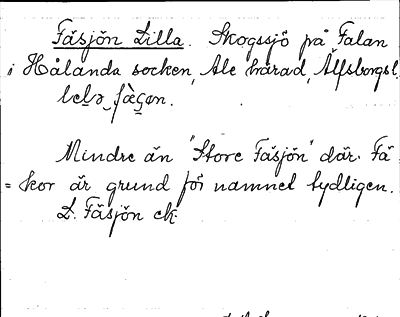 Fäsjön Lilla. Skogssjö på Falan
i Hålanda socken, Ale härad, Älfsborgs l.
Mindre än "Store Fäsjön" där. Fä
= kor är grund för namnet tydligen.
L. Fäsjön ek.